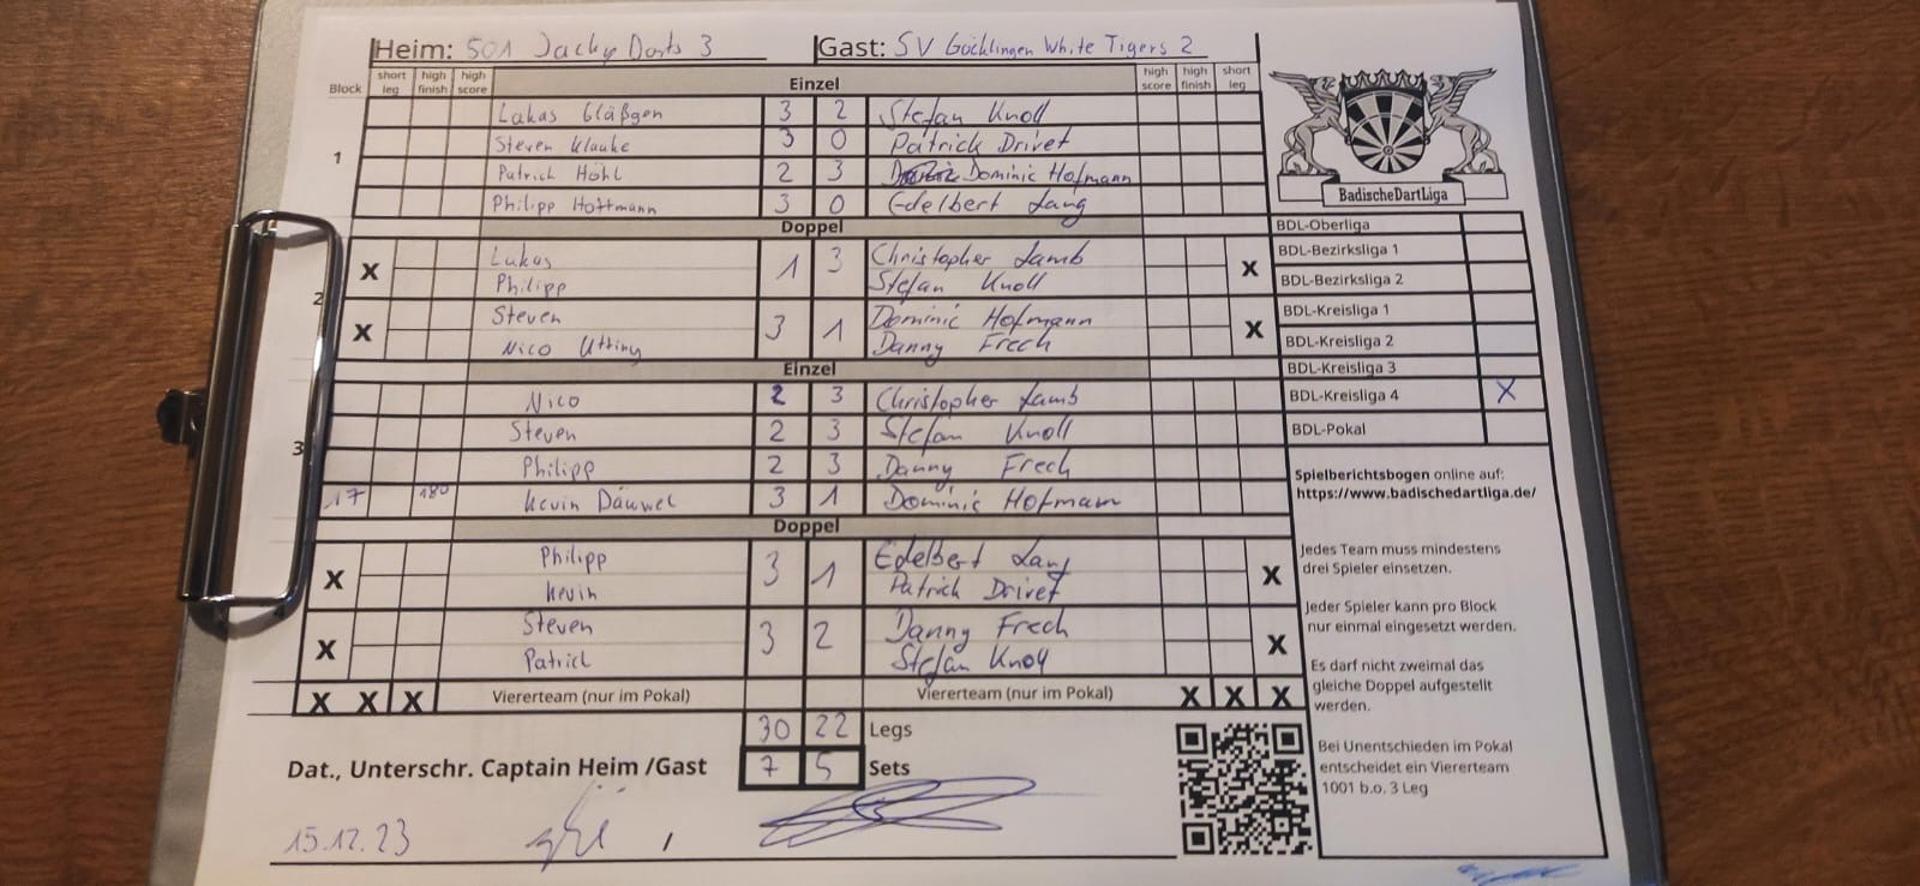 Heim: 501 Jacky Darts 3 Gast: SV Göcklingen White Tigers 2
Block short leg high finish high score Einzel high score high finish short leg
1
Lukas Gläßgen 3 2 Stefan Knoll
Steven Klauke 3 0 Patrick Drivet
Patrick Höhl 2 3 Dominic Hofmann
Philipp Hoffmann 3 0 Edelbert Lang
Doppel
2
X Lukas 1 3 Christopher Lamb X
Philipp Stefan Knoll
X Steven 3 1 Dominic Hofmann X
Nico Utting Danny Frech
Einzel
3
Nico 2 3 Christopher Lamb
Steven 2 3 Stefan Knoll
Philipp 2 3 Danny Frech
17 180 Kevin Däuwel 3 1 Dominic Hofmann
Doppel
4
X Philipp 3 1 Edelbert Lang X
Kevin Patrick Drivet
X Steven 3 2 Danny Frech X
Patrick Stefan Knoll
X X X Viererteam (nur im Pokal) Viererteam (nur im Pokal) X X X
30 22 Legs
7 5 Sets
Dat., Unterschr. Captain Heim /Gast
15.12.23
BadischeDartLiga
BDL-Oberliga
BDL-Bezirksliga 1
BDL-Bezirksliga 2
BDL-Kreisliga 1
BDL-Kreisliga 2
BDL-Kreisliga 3
BDL-Kreisliga 4 X
BDL-Pokal
Spielberichtsbogen online auf:
https://www.badischedartliga.de/
Jedes Team muss mindestens
drei Spieler einsetzen.
Jeder Spieler kann pro Block
nur einmal eingesetzt werden.
Es darf nicht zweimal das
gleiche Doppel aufgestellt
werden.
Bei Unentschieden im Pokal
entscheidet ein Viererteam
1001 b.o. 3 Leg